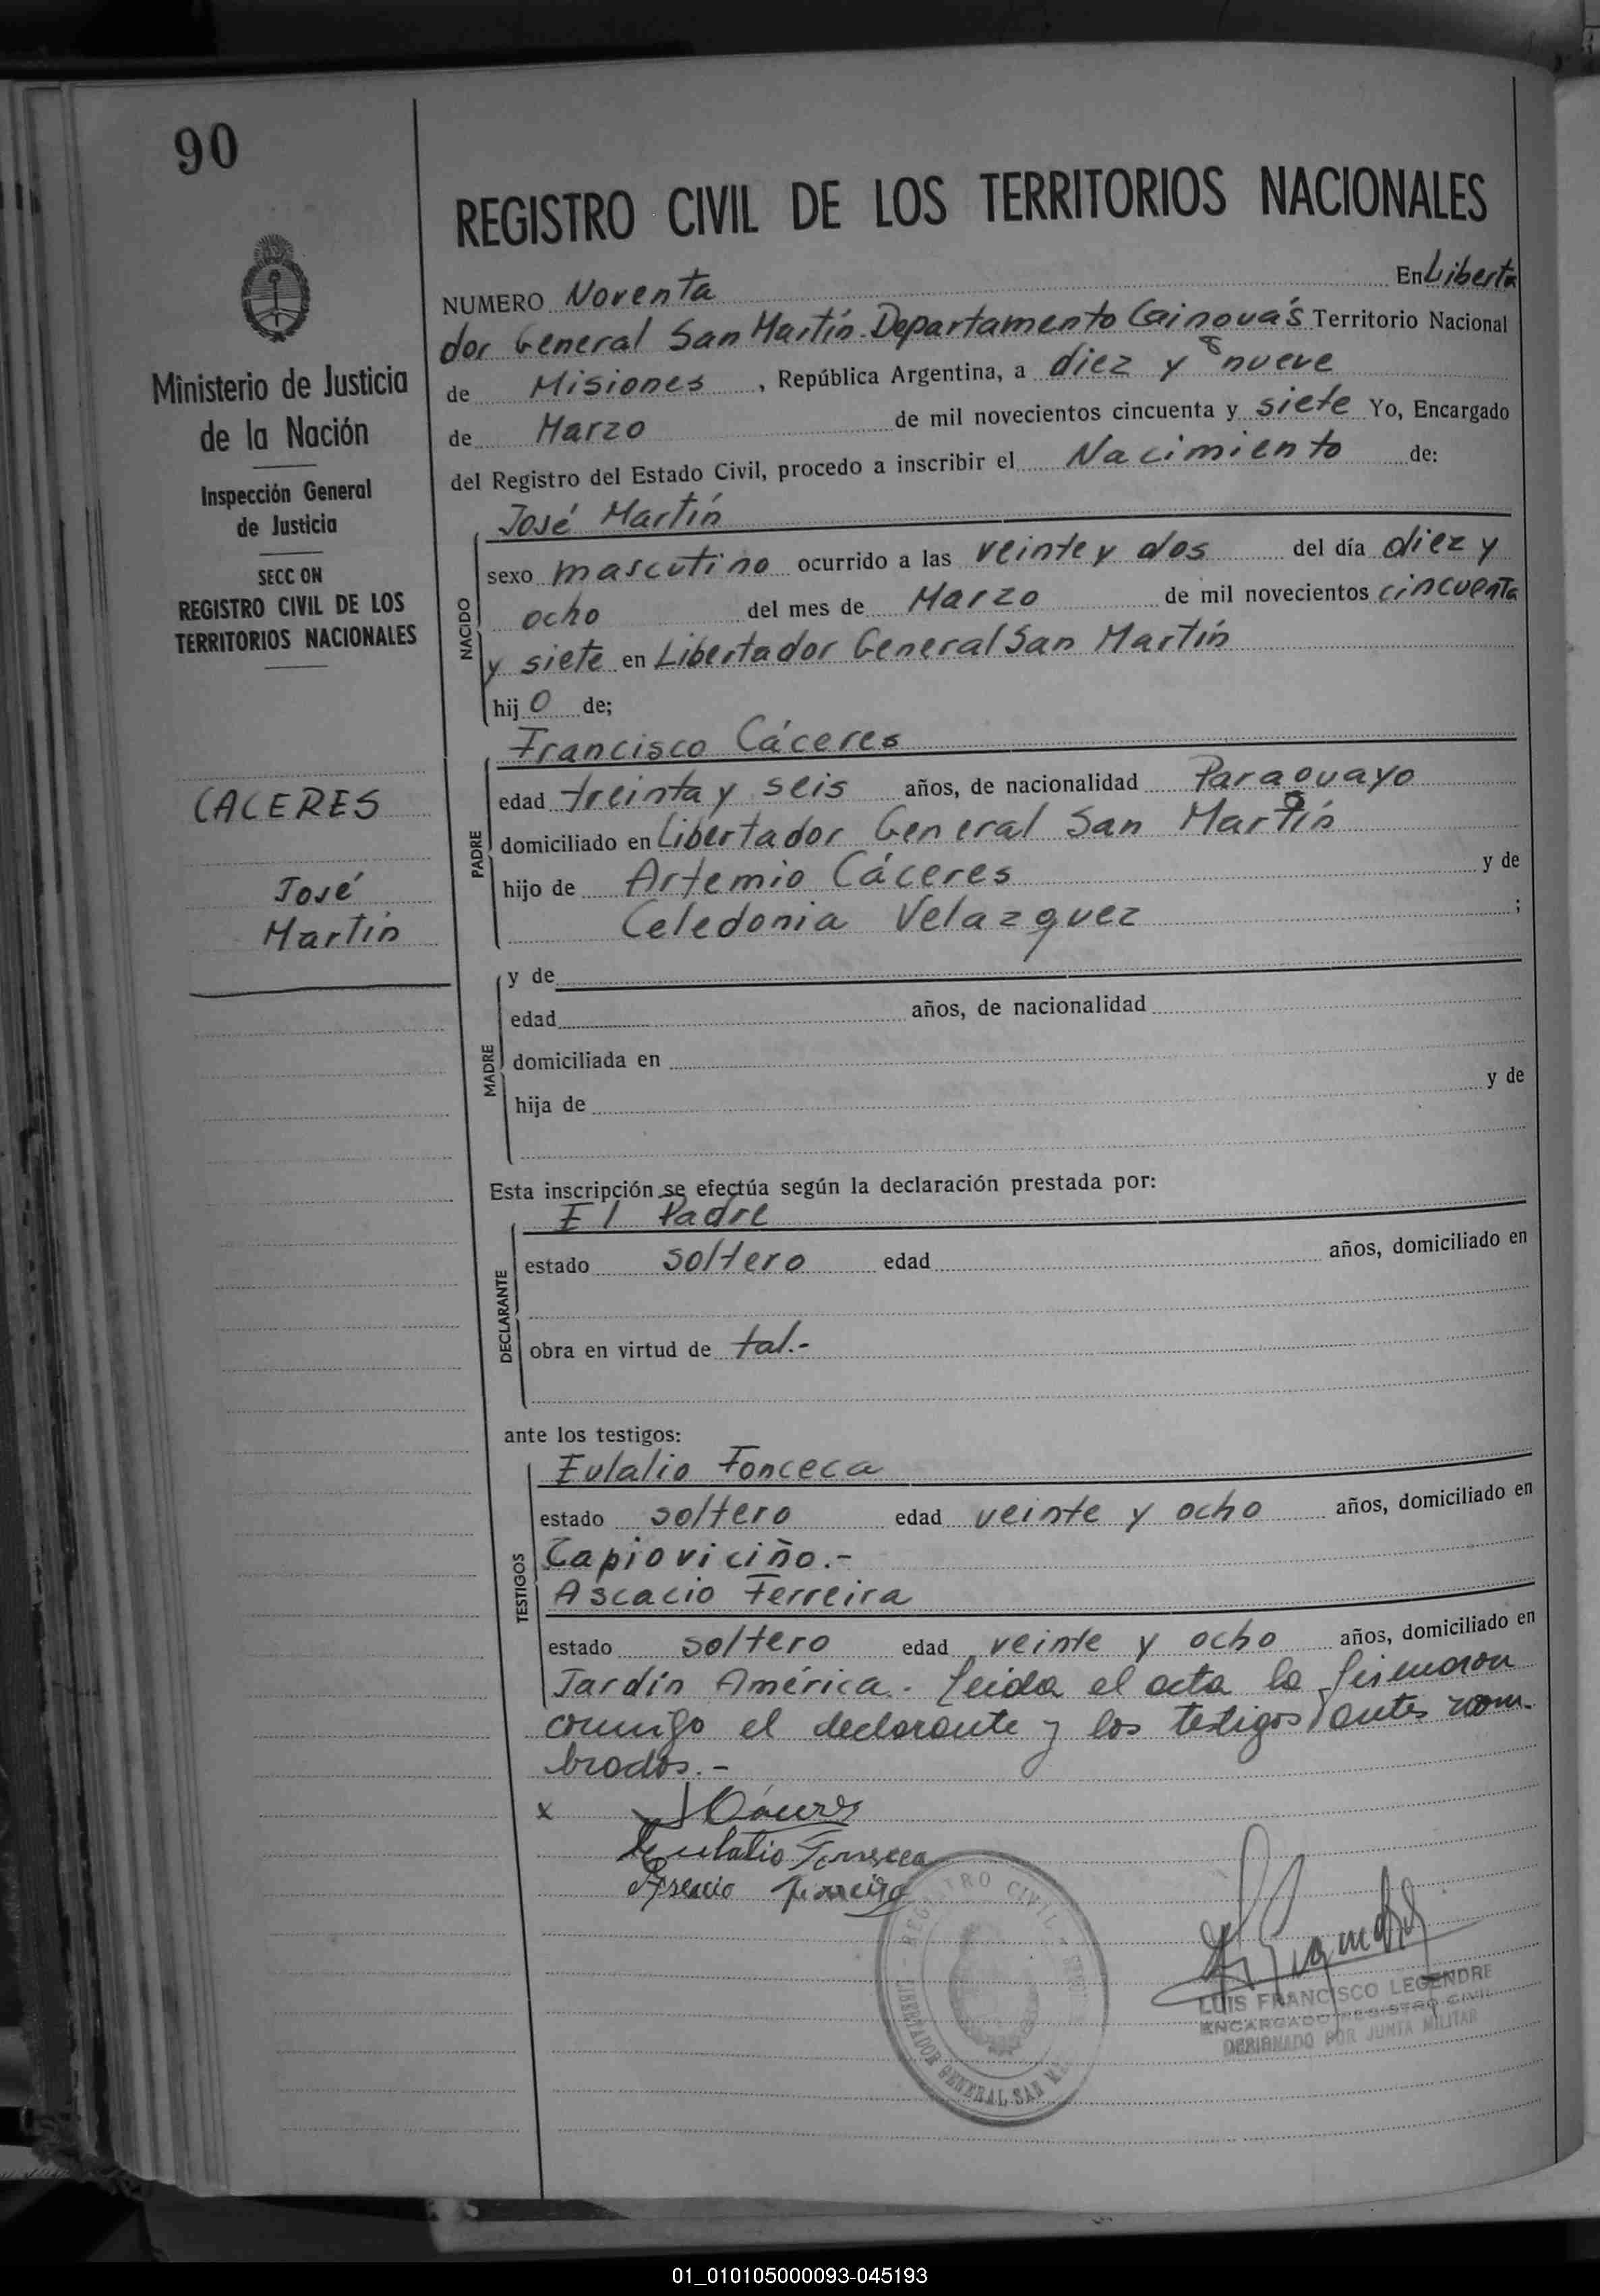 90
REGISTRO CIVIL DE LOS TERRITORIOS NACIONALES
Ministerio de Justicia
de la Nación
Inspección General
de Justicia
SECC ON
REGISTRO CIVIL DE LOS
TERRITORIOS NACIONALES
CACERES
José
Martín
NUMERO Noventa En Liberta
dor General San Martín Departamento Cainguás Territorio Nacional
de Misiones, República Argentina, a diez y nueve
de Marzo de mil novecientos cincuenta y siete Yo, Encargado
del Registro del Estado Civil, procedo a inscribir el Nacimiento de:
NACIDO
José Martín
sexo masculino ocurrido a las veinte y dos del día diez y
ocho del mes de Marzo de mil novecientos cincuenta
y siete en Libertador General San Martín
hijo de;
PADRE
Francisco Cáceres
edad treinta y seis años, de nacionalidad Paraguayo
domiciliado en Libertador General San Martín
hijo de Artemio Cáceres y de
Celedonia Velazquez ;
MADRE
y de
edad años, de nacionalidad
domiciliada en
hija de y de
Esta inscripción se efectúa según la declaración prestada por:
DECLARANTE
El Padre
estado soltero edad años, domiciliado en
obra en virtud de tal.-
ante los testigos:
TESTIGOS
Eulalio Fonceca
estado soltero edad veinte y ocho años, domiciliado en
Capioviciño.-
Ascacio Ferreira
estado soltero edad veinte y ocho años, domiciliado en
Jardín América. Leida el acta la firmaron
conmigo el declarante y los testigos antes nom-
brados.-
x Cáceres
Eulalio Fonseca
Ferreira
REGISTRO CIVIL
LIBERTADOR GENERAL SAN M
LUIS FRANCISCO LEGENDRE
ENCARGADO REGISTRO CIVIL
DESIGNADO POR JUNTA MILITAR
01_010105000093-045193